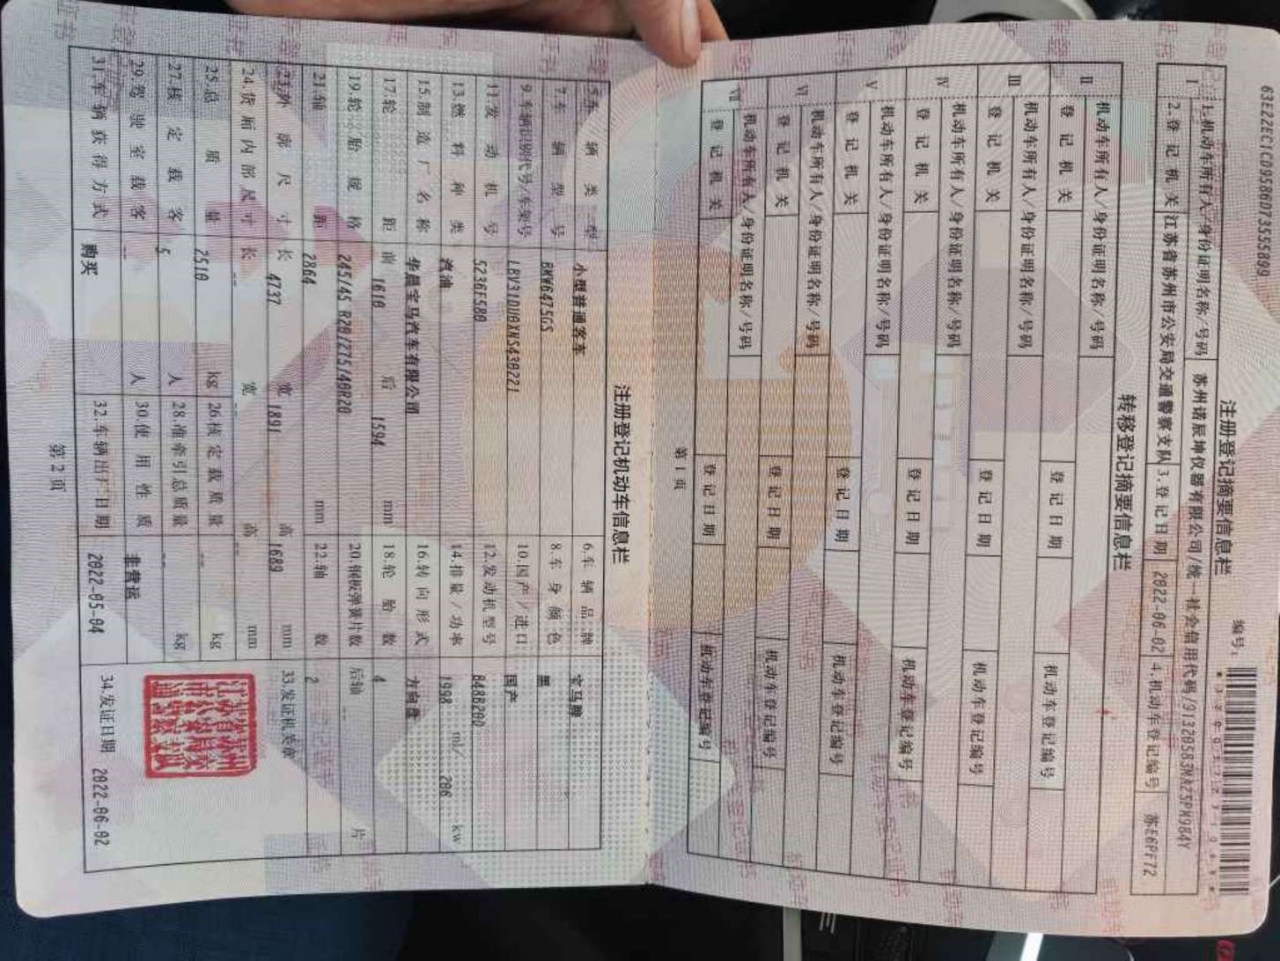 63E22EC1CD9586D73555899
编号:
注册登记摘要信息栏
Ⅰ 1.机动车所有人/身份证明名称/号码 苏州诺辰坤仪器有限公司/统一社会信用代码/91320583MA25PM984Y
2.登记机关 江苏省苏州市公安局交通警察支队 3.登记日期 2022-06-02 4.机动车登记编号 苏E6PF72
转移登记摘要信息栏
Ⅱ 机动车所有人/身份证明名称/号码
登记机关 登记日期 机动车登记编号
Ⅲ 机动车所有人/身份证明名称/号码
登记机关 登记日期 机动车登记编号
Ⅳ 机动车所有人/身份证明名称/号码
登记机关 登记日期 机动车登记编号
Ⅴ 机动车所有人/身份证明名称/号码
登记机关 登记日期 机动车登记编号
Ⅵ 机动车所有人/身份证明名称/号码
登记机关 登记日期 机动车登记编号
Ⅶ 机动车所有人/身份证明名称/号码
登记机关 登记日期 机动车登记编号
第1页
注册登记机动车信息栏
5.车辆类型 小型普通客车 6.车辆品牌 宝马牌
7.车辆型号 BMW6475GS 8.车身颜色 黑
9.车辆识别代号/车架号 LBV31DU0XNS430221 10.国产/进口 国产
11.发动机号 5236F580 12.发动机型号 B48B20D
13.燃料种类 汽油 14.排量/功率 1998 ml/ 206 kw
15.制造厂名称 华晨宝马汽车有限公司 16.转向形式 方向盘
17.轮距 前 1610 后 1594 mm 18.轮胎数 4
19.轮胎规格 245/45 R20/275/40R20 20.钢板弹簧片数 后轴 -- 片
21.轴距 2864 mm 22.轴数 2
23.外廓尺寸 长 4737 宽 1891 高 1689 mm
24.货厢内部尺寸 长 -- 宽 -- 高 -- mm
33.发证机关章
25.总质量 2510 kg 26.核定载质量 -- kg
27.核定载客 5 人 28.准牵引总质量 -- kg
29.驾驶室载客 -- 人 30.使用性质 非营运
31.车辆获得方式 购买 32.车辆出厂日期 2022-05-04 34.发证日期 2022-06-02
第2页